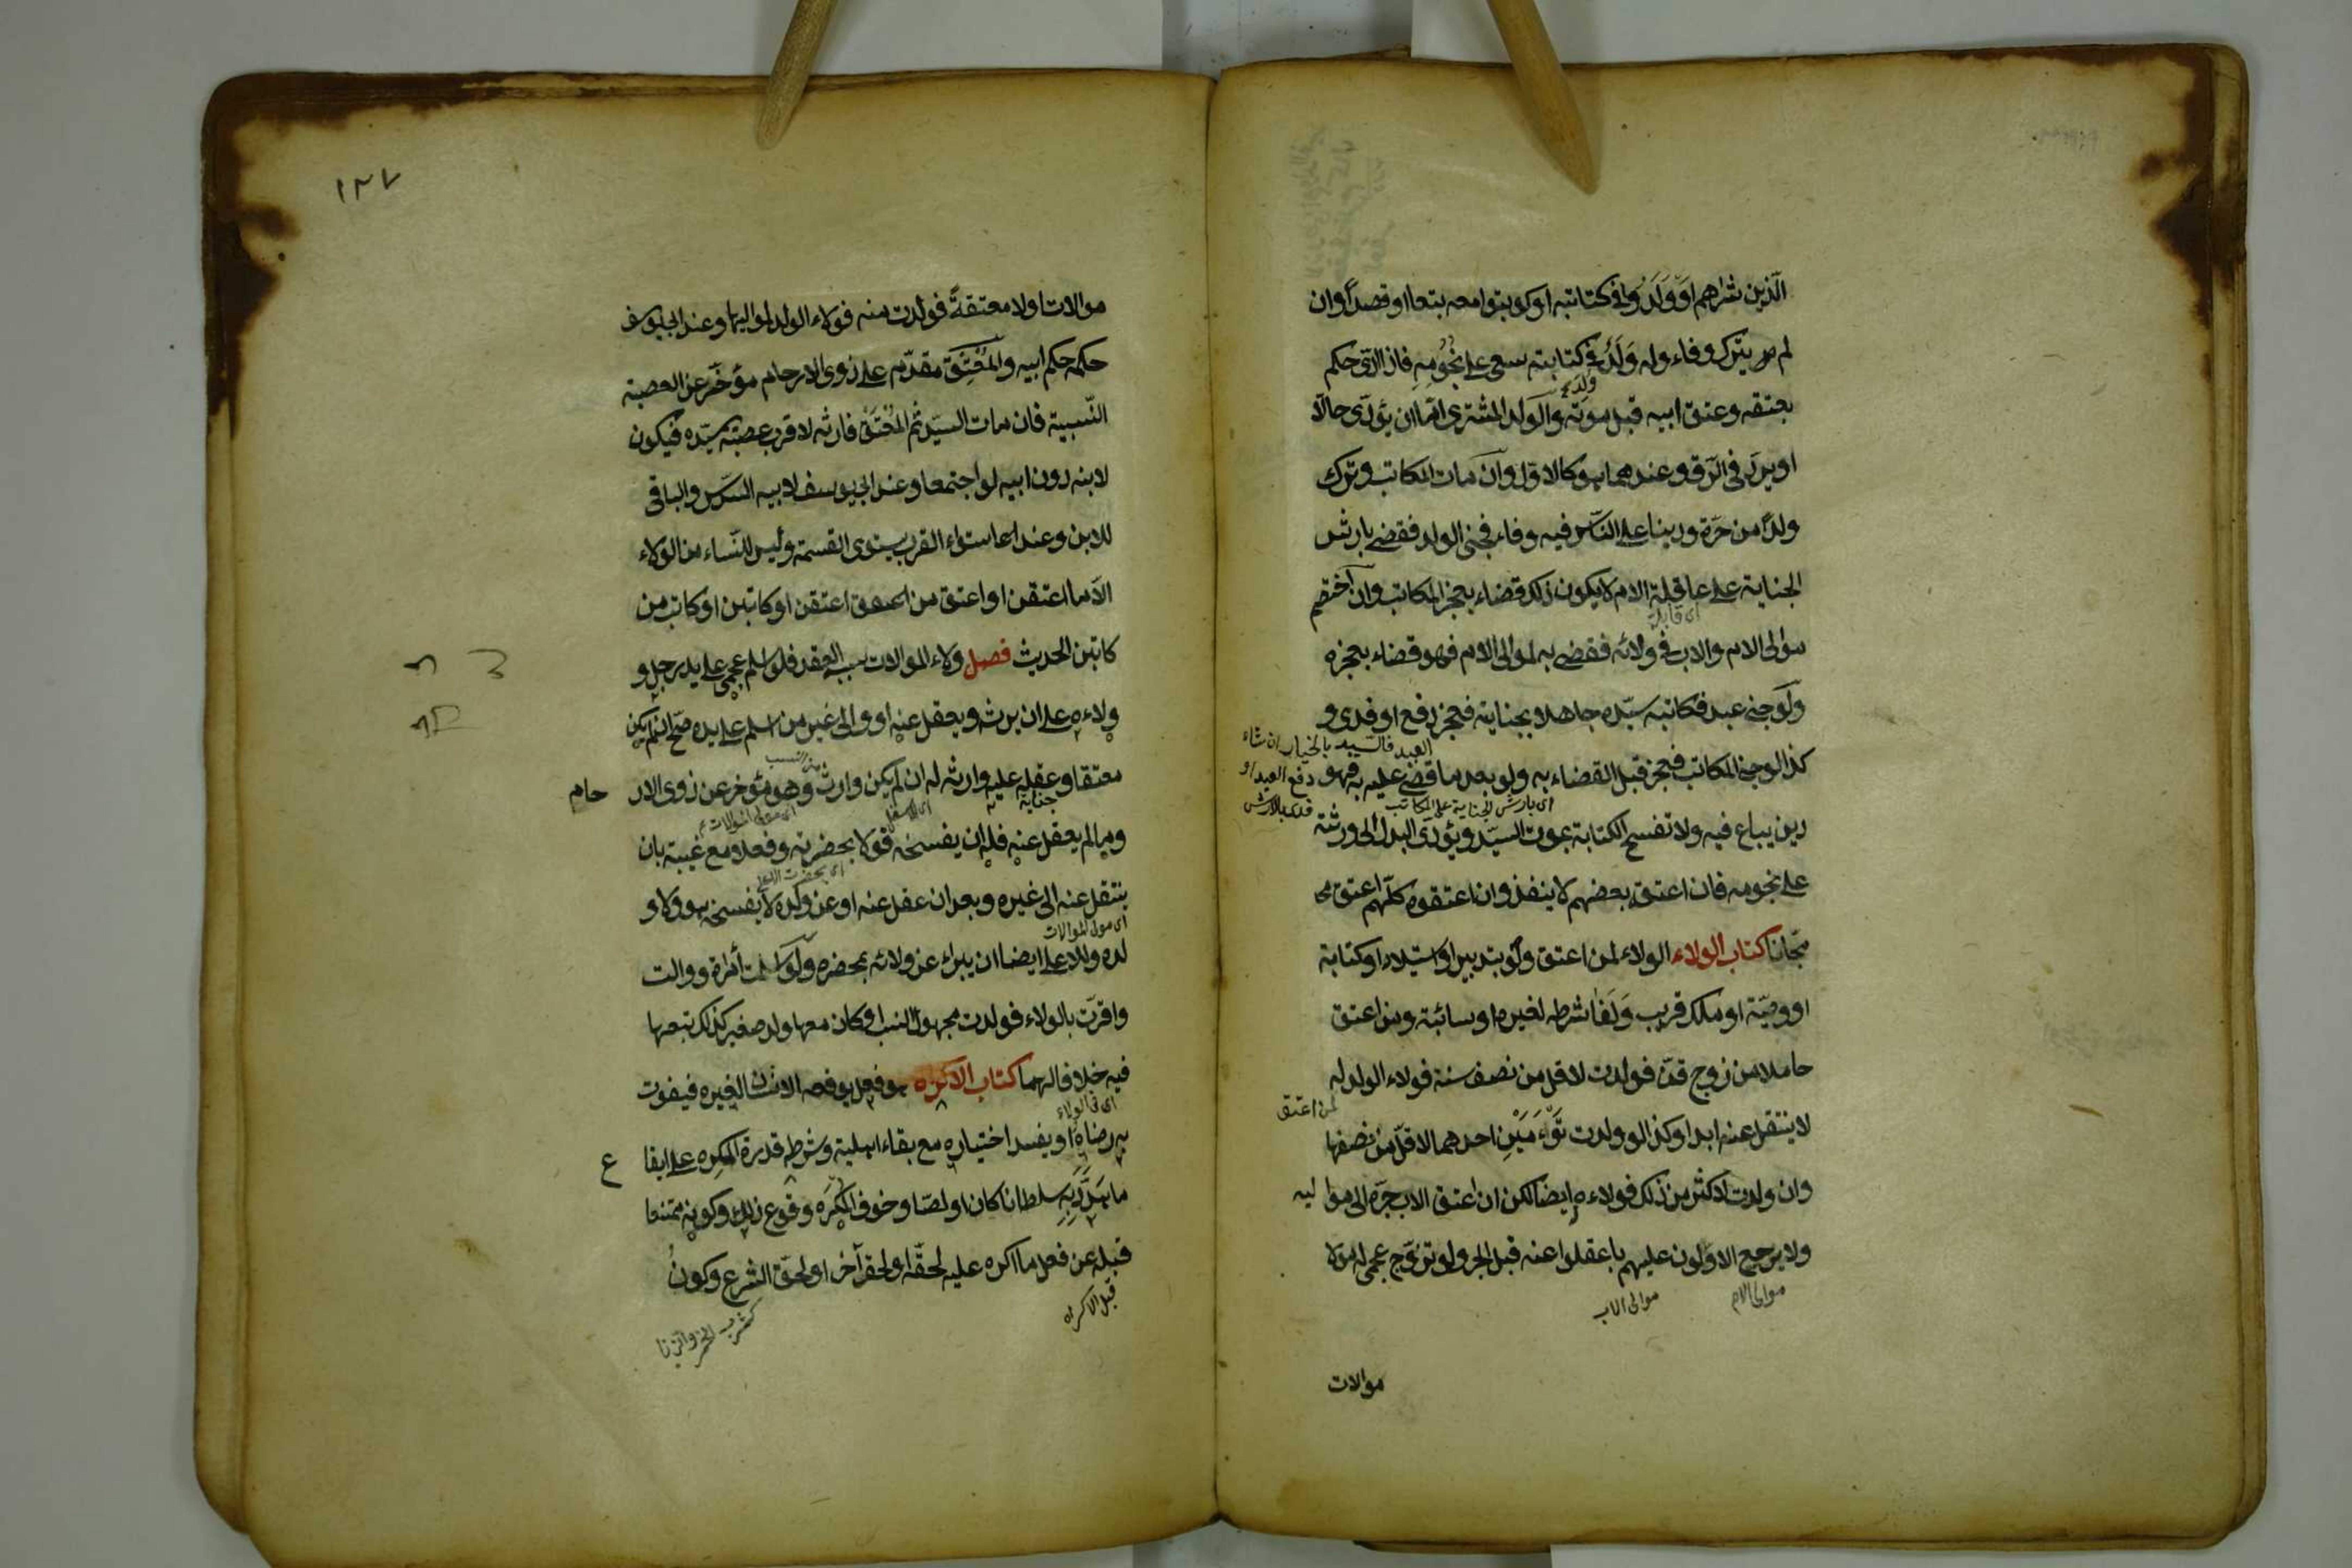 الّذين شراهم او وَلَدُوا فى كتابته او كوتبوا معه بتعا او قصداً وان
لم يترك وفاء وله وَلَدٌ فى كتابته سعى على نُجُومِهِ فاذا ادّى حكم
بعتقه وعتق ابيه قبل موته والولد المشترى امّا ان يؤدّى حالّا
او يردّ فى الرّق وعندهما هو كالاوّل وان مات المكاتب وترك
ولداً من حرّة ودينا على النّاس فيه وفاء فجنى الولد فقضى بارش
الجناية على عاقلة الام لا يكون ذلك قضاء بعجز المكاتب وان اختصم
موالى الام والاب فى ولائه فقضى به لموالى الام فهو قضاء بعجزه
ولو جنى عبد فكاتبه سيّده جاهلا بجنايته فعجز دفع او فدى و
العبد فالسّيد بالخيار ان شاء
كذا لو جنى المكاتب فعجز قبل القضاء به ولو بعد ما قضى عليه به فهو
دفع العبد او
اى بارش الجناية على المكاتب
دين يباع فيه ولا تفسخ الكتابة بموت السيّد ويؤدّى البدل الى ورثته
على نجومه فان اعتق بعضهم لا ينفذ وان اعتقوه كلّهم اعتق
مجّانا كتاب الولاء الولاء لمن اعتق ولو بتدبير او استيلاد او كتابة
او وصيّة او ملك قريب ولغا شرطه لغيره او سائبة ومن اعتق
حاملا من زوج قنّ فولدت لاقل من نصف سنة فولاء الولد له
لمن اعتق
لا ينتقل عنه ابدا وكذا لو ولدت تَوْءَمَيْنِ احدهما لاقلّ من نصفها
وان ولدت لاكثر من ذلك فولاءه ايضا لكن ان اعتق الاب جرّه الى مواليه
ولا يرجع الاوّلون عليهم بما عقلوا عنه قبل الجر ولو تزوّج عجمى له مولا
موالى الام
موالى الاب
موالات
١٢٧
موالات او لا معتقةً فولدت منه فولاء الولد لمواليها وعند ابى يوسف
حكمه حكم ابيه والمُعْتِق مقدّم على ذوى الارحام مؤخّر عن العصبة
النّسبية فان مات السيّد ثم المُعْتَق فارثه لاقرب عصبة سيّده فيكون
لابنه دون ابيه لو اجتمعا وعند ابى يوسف لابيه السدس والباقى
للابن وعند استواء القرب يستوى القسمة وليس للنّساء من الولاء
الّا ما اعتقن او اعتق من اعتقن او كاتبن او كاتب من
كاتبن الحديث فصل ولاء الموالات سببه العقد فلو اسلم عجمى على يد رجل و
ولاءه على ان يرثه ويعقل عنه او والى غير من اسلم على يده صحّ ان لم يكن
معتقا وعقله عليه وارثه له ان لم يكن وارث وهو مؤخر عن ذوى الارحام
جناية
اى مولى الموالات
وما لم يعقل عنه فله ان يفسخه قولا بحضرته وفعلا مع غيبته بان
ينتقل عنه الى غيره وبعد ان عقل عنه او عن ولده لا يفسخه هو ولا و
اى مولى الموالات
لده وللاعلى ايضا ان يبراء عن ولائه بمحضره ولو اسلمت أمراة ووالت
واقرّت بالولاء فولدت مجهول النسب او كان معها ولد صغير كذلك تبعها
فيه خلافا لهما كتاب الاكراه هو فعل يوقعه الانسان لغيره فيفوت
اى فى الولاء
به رضاه او يفسد اختياره مع بقاء اهليته وشرطه قدرة المكرِه على ايقاع
ما هَدَّدَ بِهِ سلطانا كان او لصّا وخوف المكرَه وقوع ذلك وكونه ممتنعا
قبله عن فعل ما اكره عليه لحقّه او لحق آخر او لحقّ الشرع وكون
قبل الاكراه
كشرب الخمر والزنا